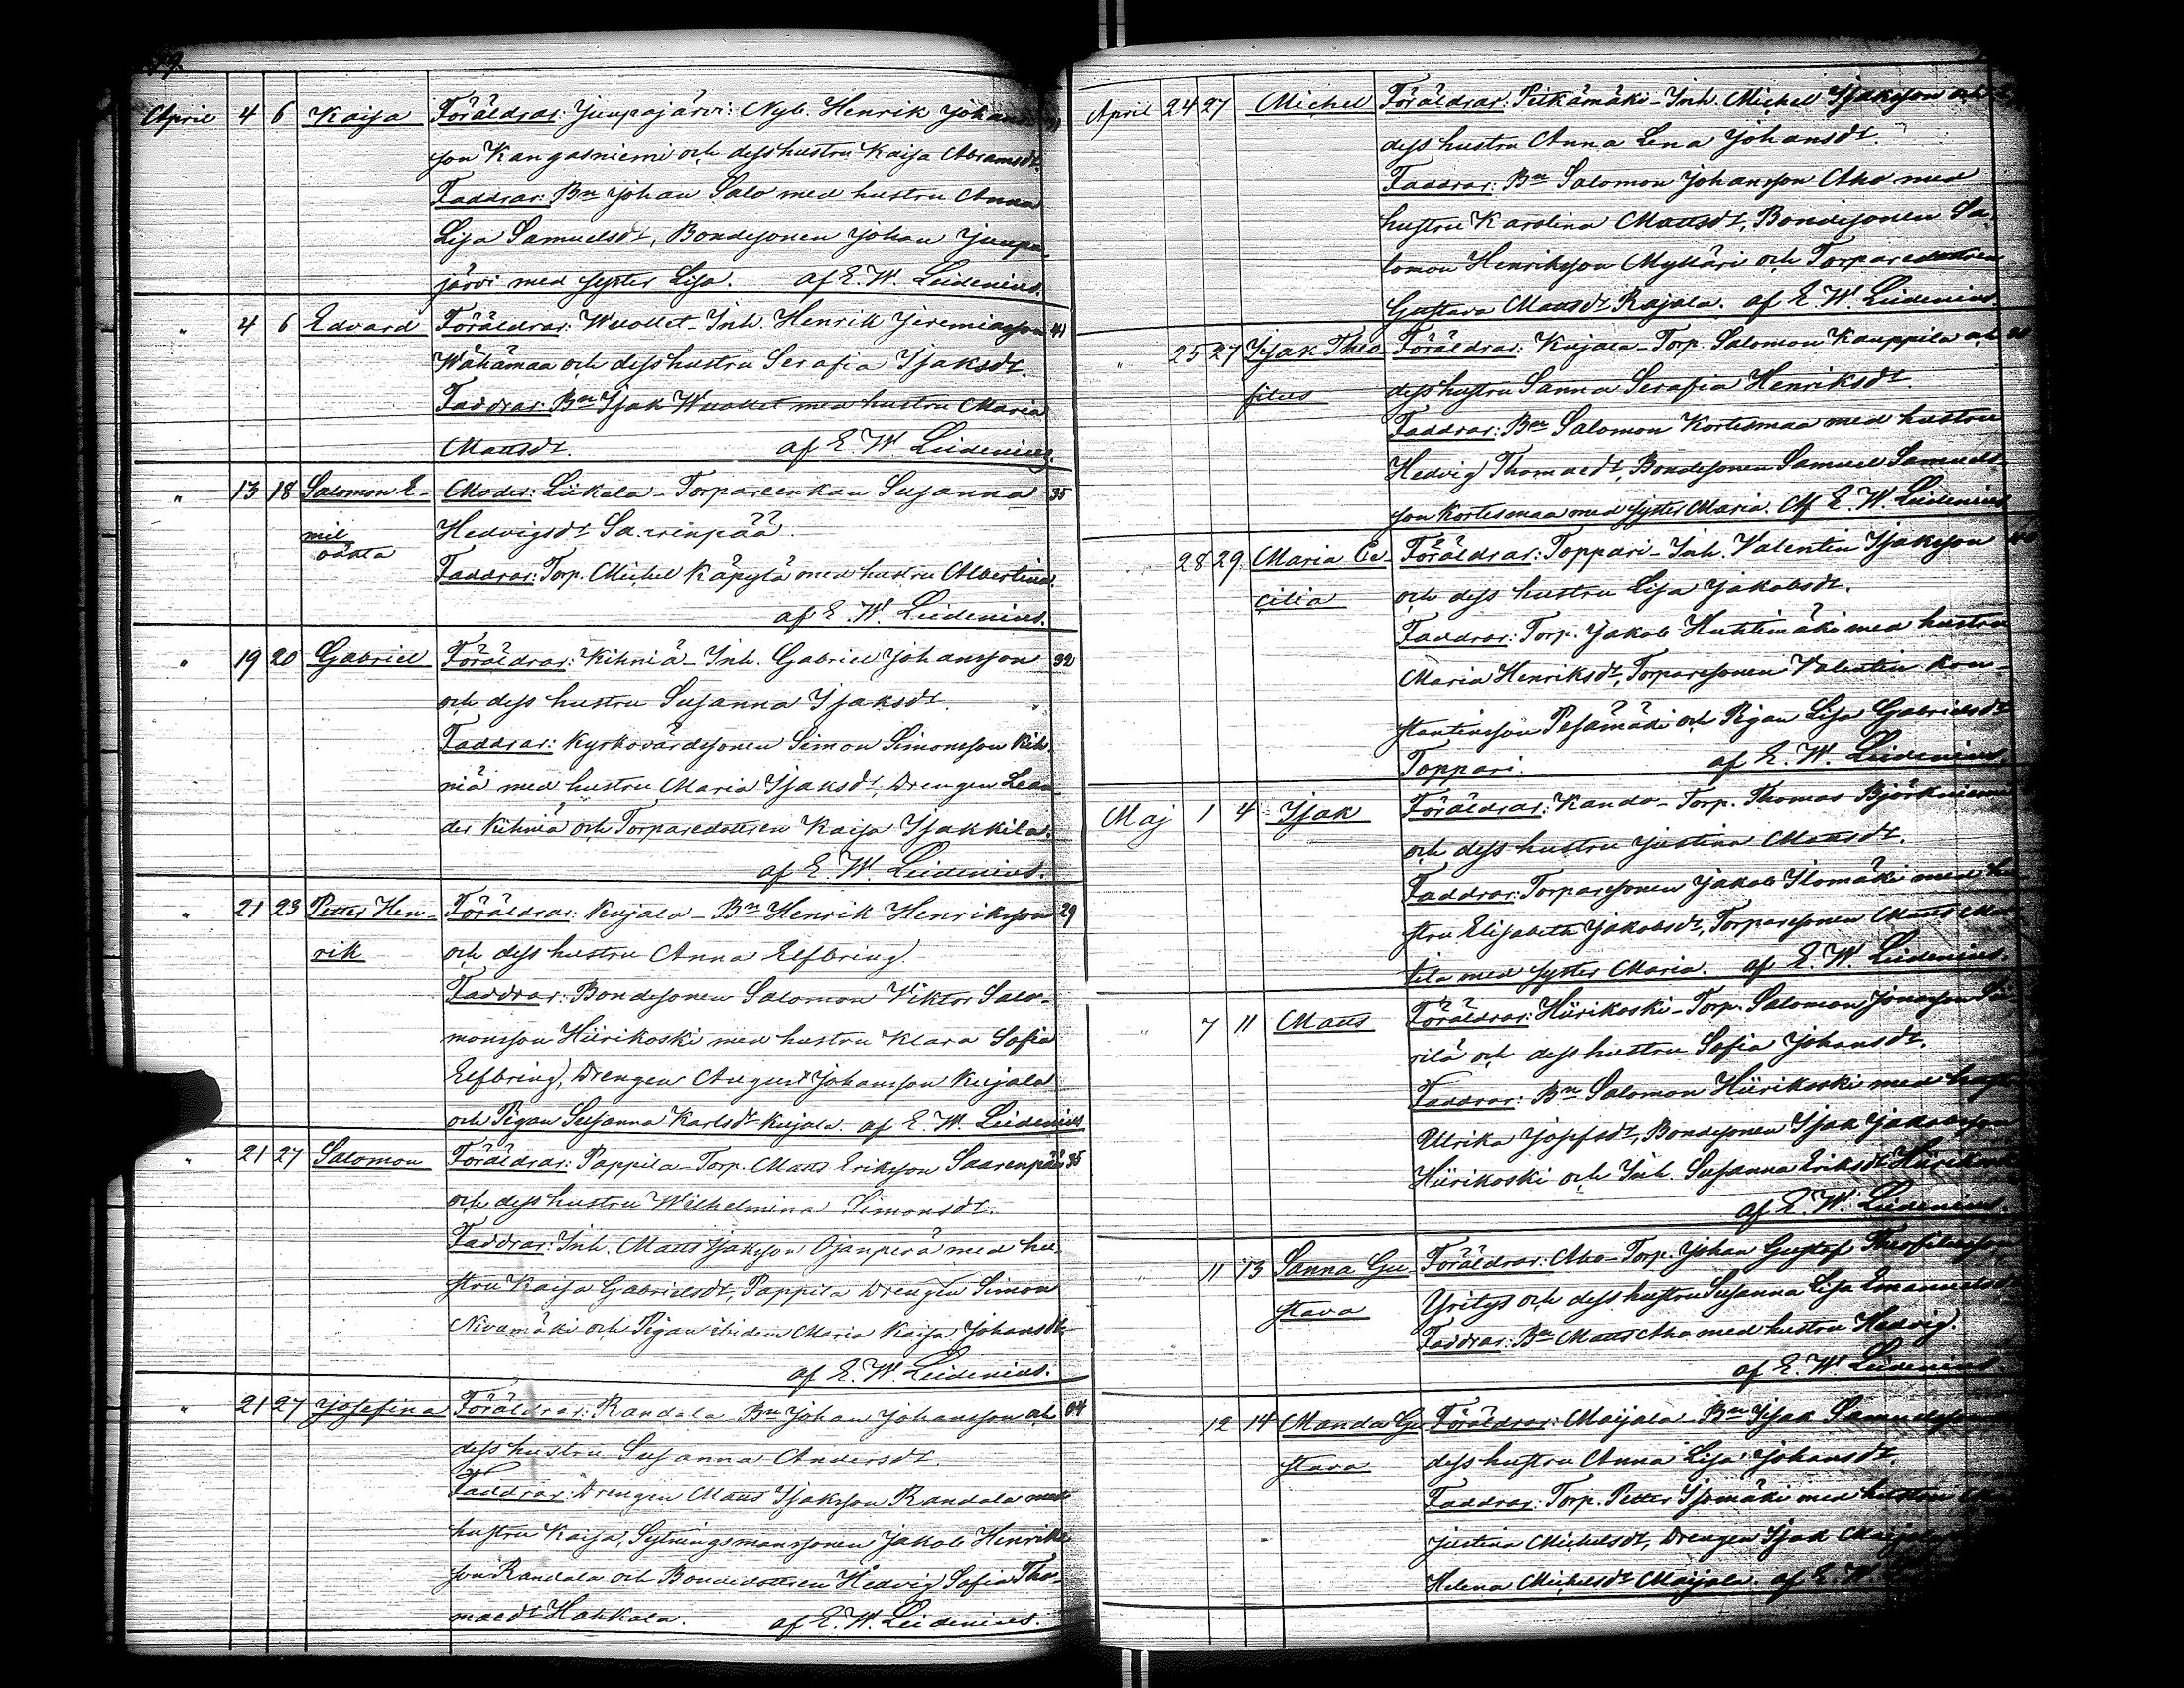 April 4 6 Kaisa Föräldrar: Juupajärvi: Nyb. Henrik Johans
son Kangasniemi och dess hustru Kaisa Abramsdr.
Faddrar: Bn Johan Salo med hustru Anna
Lisa Samuelsdr, Bondesonen Johan Juupa
järvi med syster Lisa. af E. W. Lidenius.
" 4 6 Edvard Föräldrar: Wuollet-Inh. Henrik Jeremiasson 41
Wähämaa och dess hustru Serafia Isaksdr.
Faddrar: Bn Isak Wuollet med hustru Maria
Mattsdr. af E. W. Lidenius.
" 13 18 Salomon E- Moder: Liikala-Torpareenkan Susanna 35
mil Hedvigsdr Saarenpää.
oäkta Faddrar: Torp. Michel Käpylä med hustru Albertina.
af E. W. Lidenius.
" 19 20 Gabriel Föräldrar: Kihniä-Inh. Gabriel Johansson 32
och dess hustru Susanna Isaksdr.
Faddrar: Kyrkovärdssonen Simon Simonsson Kih
niä med hustru Maria Isaksdr, Drengen Lean
der Kihniä och Torparedottren Kaisa Isakkila.
af E. W. Lidenius.
" 21 23 Petter Hen- Föräldrar: Kujala-Bn Henrik Henriksson 29
rik och dess hustru Anna Elfbring.
Faddrar: Bondesonen Salomon Viktor Salo-
monsson Hiirikoski med hustru Klara Sofia
Elfbring, Drengen August Johansson Kujala
och Pigan Susanna Karlsdr Kujala. af E. W. Lidenius
" 21 27 Salomon Föräldrar: Pappila-Torp. Matts Eriksson Saarenpää 35
och dess hustru Wilhelmina Simonsdr.
Faddrar: Inh. Matts Isaksson Ojanperä med hu
stru Kaisa Gabrielsdr, Pappila Drengen Simon
Nivamäki och Pigan ibidem Maria Kaisa Johansdr
af E. W. Lidenius.
" 21 27 Josefina Föräldrar: Randala Bn Johan Johansson och 34
dess hustru Susanna Andersdr.
Faddrar: Drengen Matts Isaksson Randala med
hustru Kaisa, Sytningsmanssonen Jakob Henriks
son Randala och Bondedottren Hedvig Sofia Tho-
maedr Hahkala. af E. W. Lidenius.
April 24 27 Michel Föräldrar: Pitkämäki-Inh. Michel Isaksson och
dess hustru Anna Lena Johansdr.
Faddrar: Bn Salomon Johansson Aho med
hustru Karolina Mattsdr, Bondesonen Sa
lomon Henriksson Mylläri och Torparedottren
Gustava Mattsdr Rajala. af E. W. Lidenius.
" 25 27 Isak Theo- Föräldrar: Kujala-Torp. Salomon Kauppila och
filus dess hustru Sanna Serafia Henriksdr.
Faddrar: Bn Salomon Kortesmaa med hustru
Hedvig Thomaedr, Bondesonen Samuel Samuels-
son Kortesmaa med syster Maria. Af E. W. Lidenius
28 29 Maria Ce- Föräldrar: Toppari-Inh. Valentin Isaksson
cilia och dess hustru Lisa Jakobsdr.
Faddrar: Torp. Jakob Huhtimäki med hustru
Maria Henriksdr, Torparesonen Valentin Kon-
stantinsson Pesämäki och Pigan Lisa Gabrielsdr
Toppari. af E. W. Lidenius.
Maj 1 4 Isak Föräldrar: Kando-Torp. Thomas Björkniemi
och dess hustru Justina Mattsdr.
Faddrar: Torparesonen Jakob Ilomäki med hu
stru Elisabeth Jakobsdr, Torparesonen Matts
tila med syster Maria. af E. W. Lidenius.
" 7 11 Matts Föräldrar: Hiirikoski-Torp. Salomon Jonasson Sii
rilä och dess hustru Sofia Johansdr.
Faddrar: Bn Salomon Hiirikoski med hustru
Ulrika Josefsdr, Bondesonen Isak Jakobsson
Hiirikoski och Inh. Susanna Eriksdr Hiirikoski
af E. W. Lidenius.
" 11 13 Sanna Gu- Föräldrar: Aho-Torp. Johan Gustaf Theofilusson
stava Yritys och dess hustru Susanna Lisa Emanuelsdr.
Faddrar: Bn Matts Aho med hustru Hedvig.
af E. W. Lidenius.
12 14 Manda Gu- Föräldrar: Maijala-Bn Isak Samuelsson
stava dess hustru Anna Lisa Johansdr.
Faddrar: Torp. Petter Isomäki med hustru
Justina Michelsdr, Drengen Isak Maijala
Helena Michelsdr Maijala. af E. W.